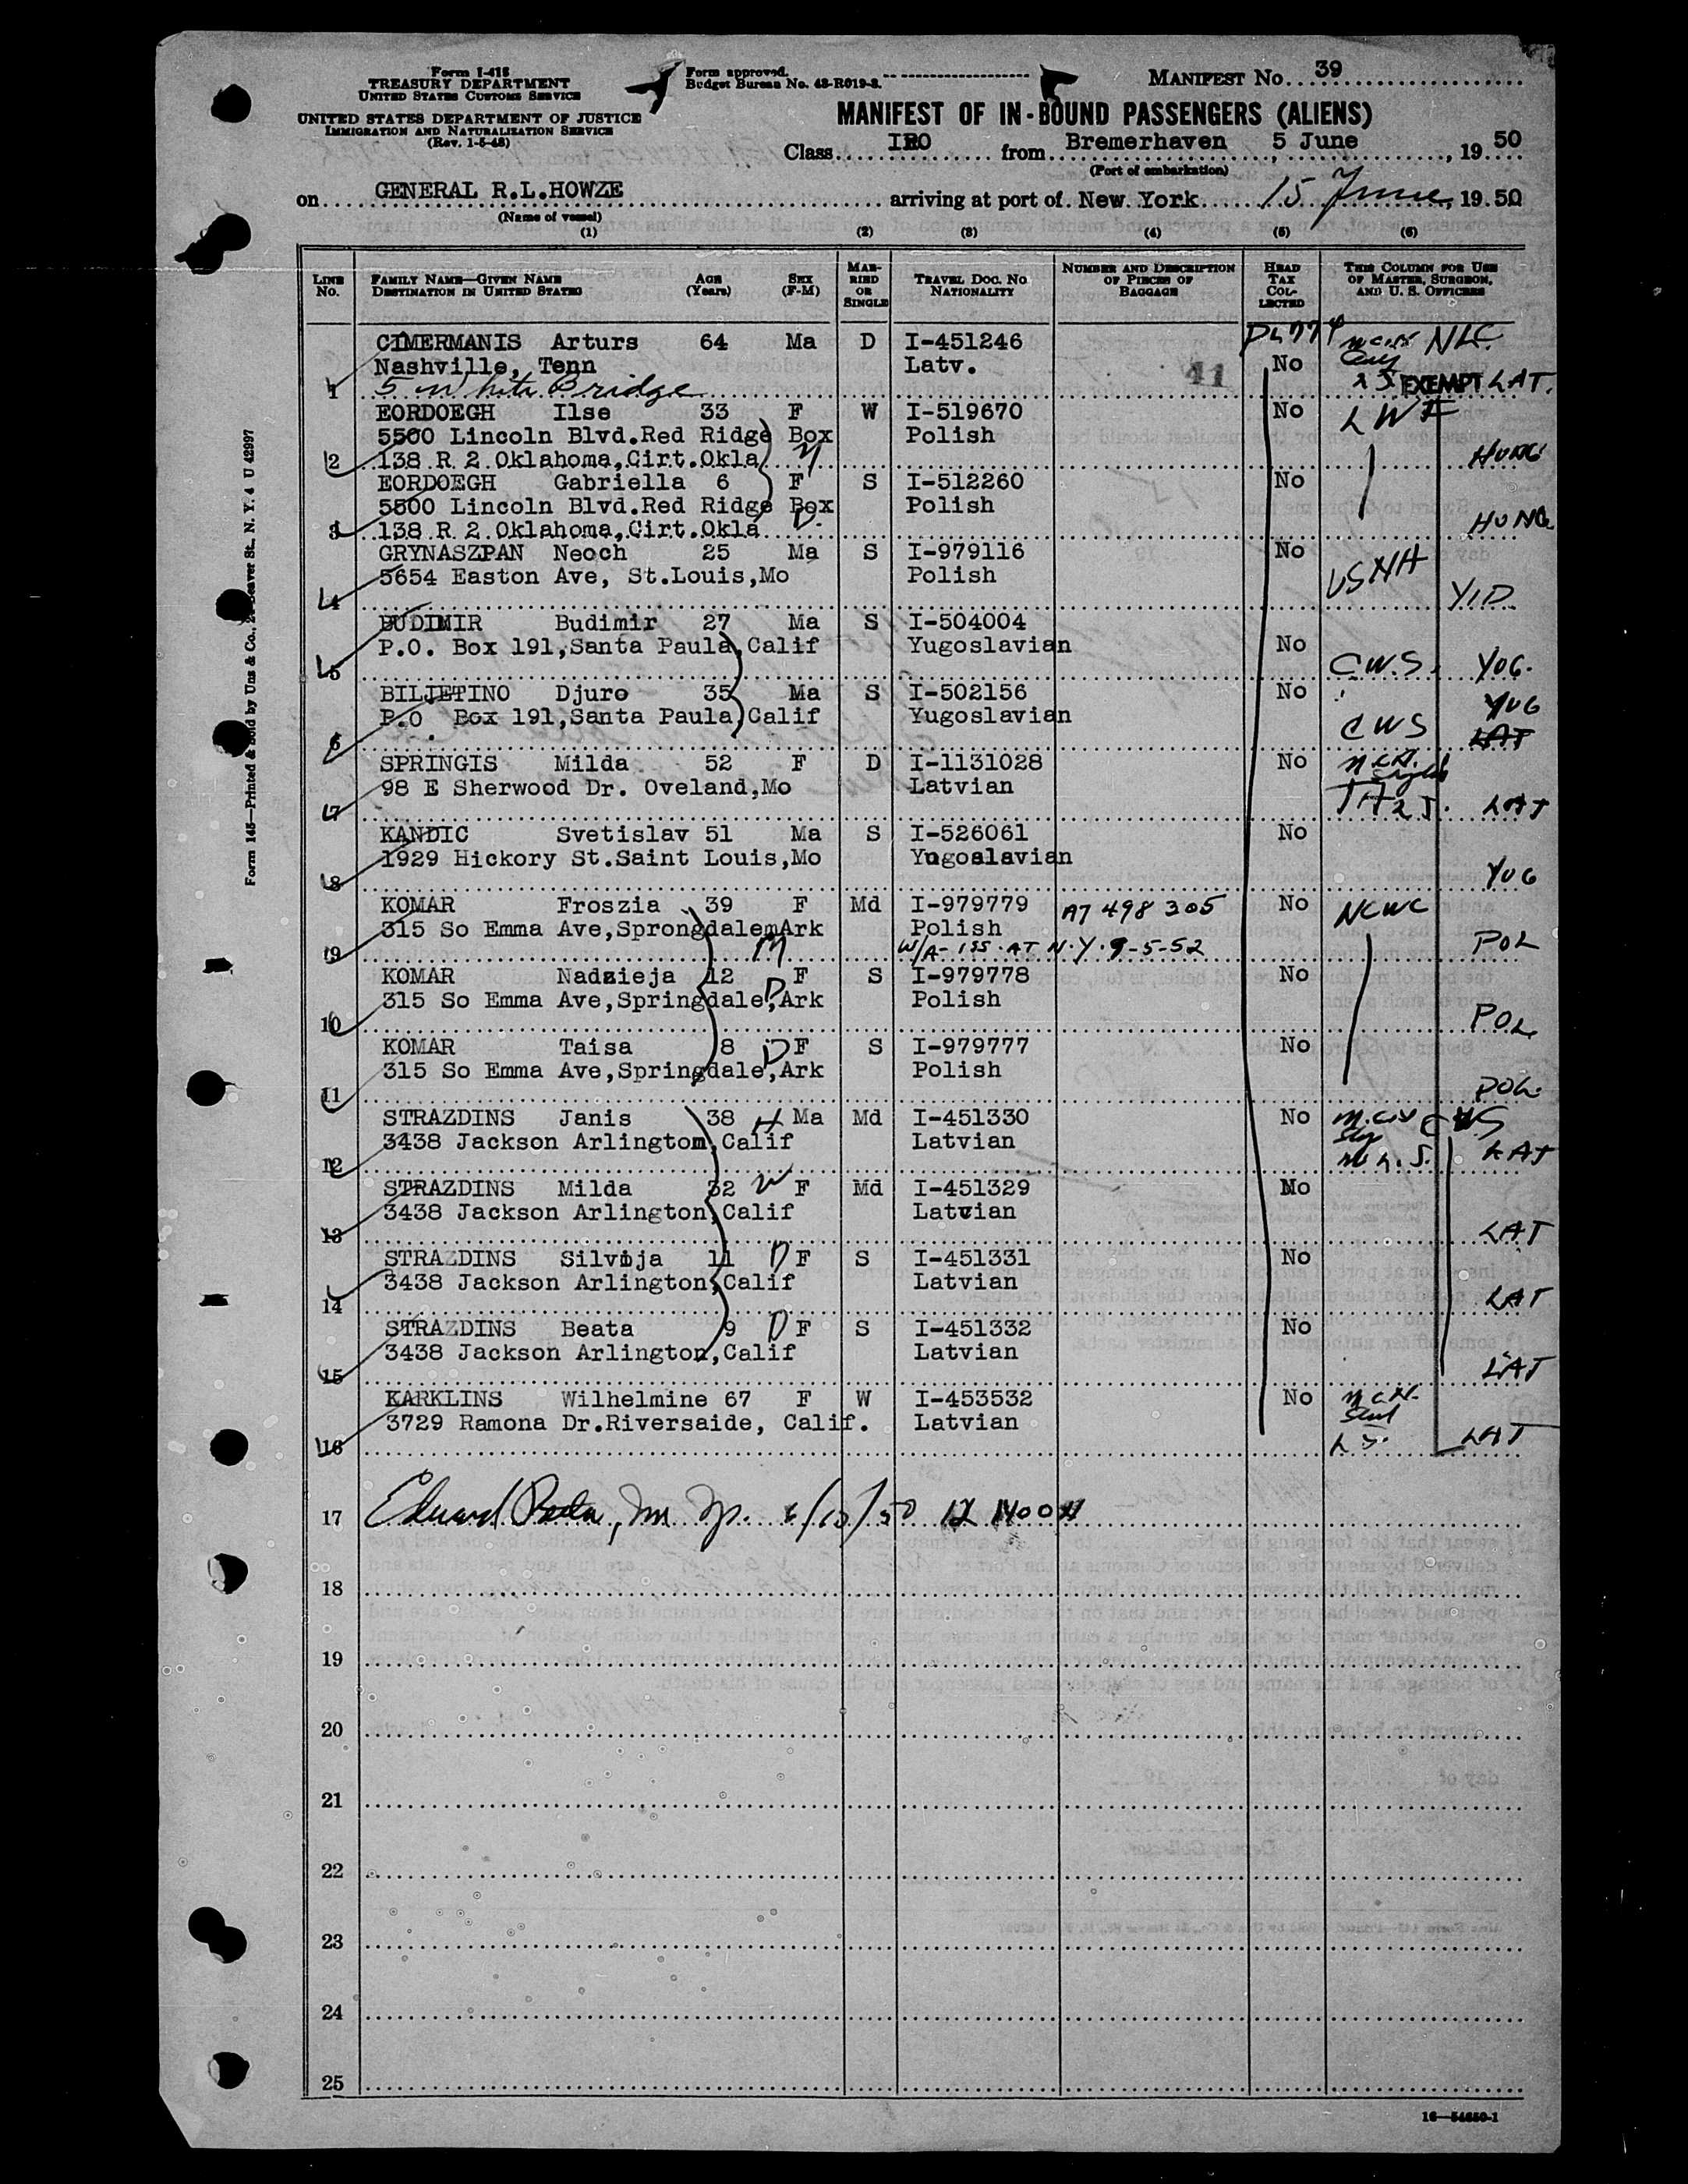 Form I-418
TREASURY DEPARTMENT
UNITED STATES CUSTOMS SERVICE
UNITED STATES DEPARTMENT OF JUSTICE
IMMIGRATION AND NATURALIZATION SERVICE
(Rev. 1-5-48)
Form approved.
Budget Bureau No. 43-R019-3.
MANIFEST No. 39
MANIFEST OF IN-BOUND PASSENGERS (ALIENS)
Class IRO from Bremerhaven 5 June, 19 50
(Port of embarkation)
on GENERAL R.L.HOWZE arriving at port of New York 15 June, 19 50
(Name of vessel)
(1) (2) (3) (4) (5) (6)
LINE No. FAMILY NAME—GIVEN NAME DESTINATION IN UNITED STATES AGE (Years) SEX (F-M) MARRIED OR SINGLE TRAVEL DOC. NO. NATIONALITY NUMBER AND DESCRIPTION OF PIECES OF BAGGAGE HEAD TAX COLLECTED THIS COLUMN FOR USE OF MASTER, SURGEON, AND U. S. OFFICERS
PL 774
CIMERMANIS Arturs 64 Ma D I-451246 NLC
Nashville, Tenn Latv. 41 No
1 5 White Bridge EXEMPT LAT.
EORDOEGH Ilse 33 F W I-519670 No LWF
5500 Lincoln Blvd.Red Ridge Box Polish
2 138 R 2 Oklahoma,Cirt.Okla M HUNG
EORDOEGH Gabriella 6 F S I-512260 No
5500 Lincoln Blvd.Red Ridge Box Polish
3 138 R 2 Oklahoma,Cirt.Okla D. HUNG
GRYNASZPAN Neoch 25 Ma S I-979116 No
5654 Easton Ave, St.Louis,Mo Polish USNA
4 YID
BUDIMIR Budimir 27 Ma S I-504004
P.O. Box 191,Santa Paula,Calif Yugoslavian No
5 C.W.S. YUG.
BILJETINO Djuro 35 Ma S I-502156 No YUG
P.O Box 191,Santa Paula,Calif Yugoslavian CWS LAT
6
SPRINGIS Milda 52 F D I-1131028 No
98 E Sherwood Dr. Oveland,Mo Latvian
7 LAT
KANDIC Svetislav 51 Ma S I-526061 No
1929 Hickory St.Saint Louis,Mo Yugoslavian
8 YUG
KOMAR Froszia 39 F Md I-979779 A7 498 305 No NCWC
315 So Emma Ave,SprongdalemArk Polish
9 M W/A-ISS. AT N.Y. 9-5-52 POL
KOMAR Nadzieja 12 F S I-979778 No
315 So Emma Ave,Springdale,Ark D Polish
10 POL
KOMAR Taisa 8 D F S I-979777 No
315 So Emma Ave,Springdale,Ark Polish
11 POL.
STRAZDINS Janis 38 H Ma Md I-451330 No CWS
3438 Jackson Arlingtom,Calif Latvian
12 LAT
STRAZDINS Milda 32 W F Md I-451329 No
3438 Jackson Arlington,Calif Latvian
13 LAT
STRAZDINS Silvija 11 D F S I-451331 No
3438 Jackson Arlington,Calif Latvian
14 LAT
STRAZDINS Beata 9 D F S I-451332 No
3438 Jackson Arlington,Calif Latvian
15 LAT
KARKLINS Wilhelmine 67 F W I-453532 No
3729 Ramona Dr.Riversaide, Calif. Latvian
16 LAT
17 Eduard 12 NOON
18
19
20
21
22
23
24
25
16—54650-1